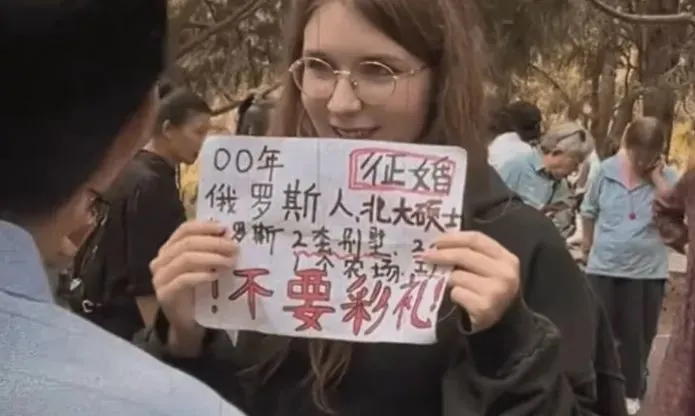 00年 征婚
俄罗斯人,北大硕士
罗斯 2套别墅 2
个农场
!不要彩礼!